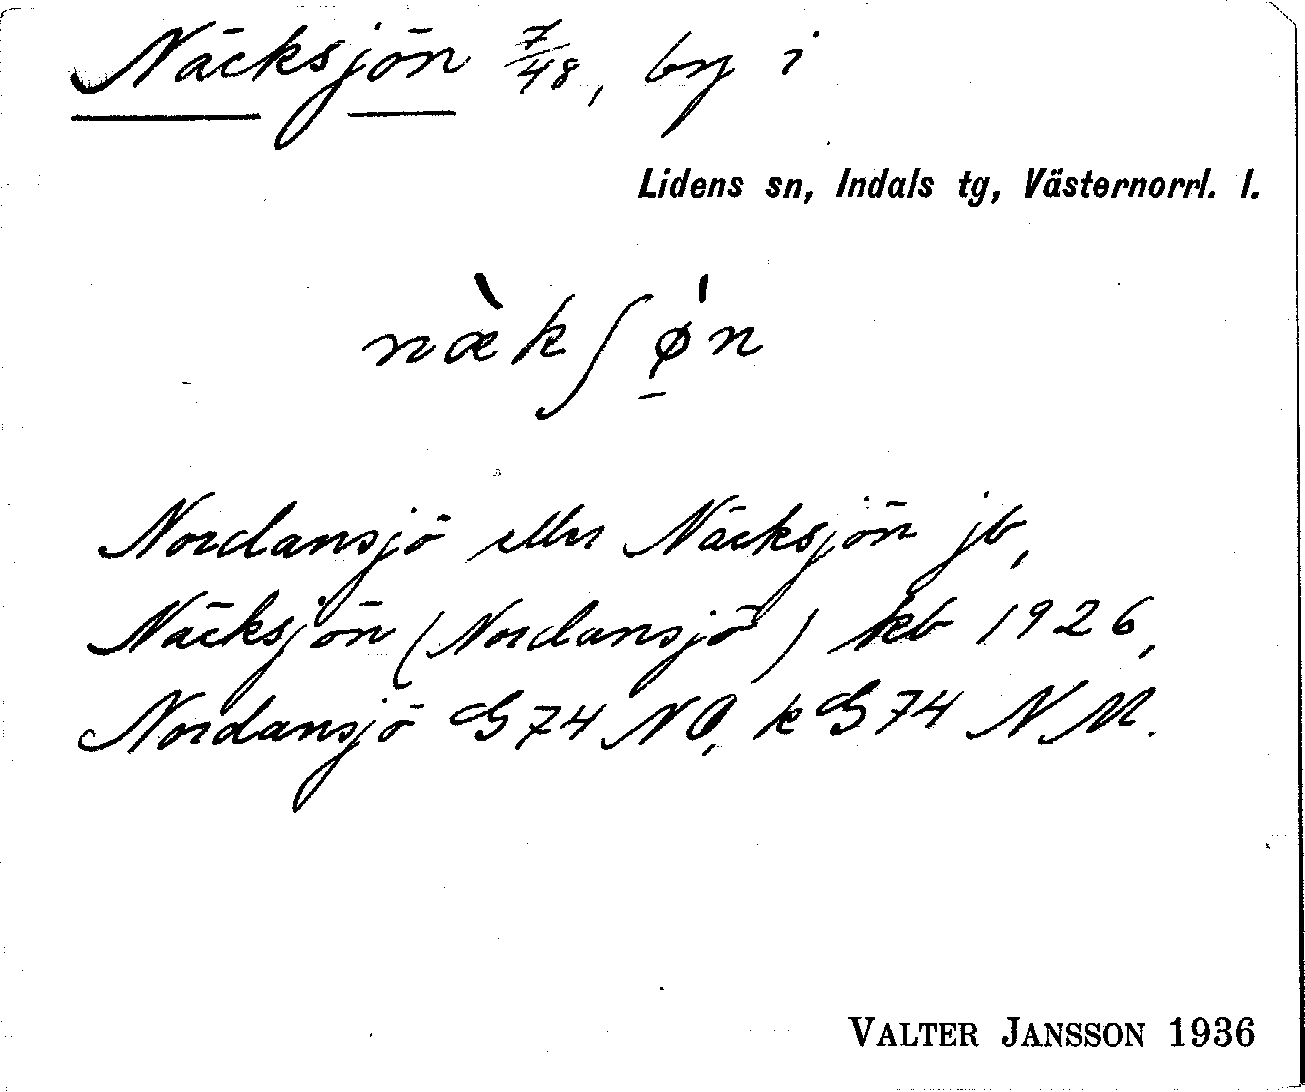 Näcksjön 7/48, by i
Lidens sn, Indals tg, Västernorrl. l.
næ̀kʃǿ̠n
Nordansjö eller Näcksjön jb,
Näcksjön (Nordansjö) kb 1926,
Nordansjö G74 NO, k G74 NM.
VALTER JANSSON 1936